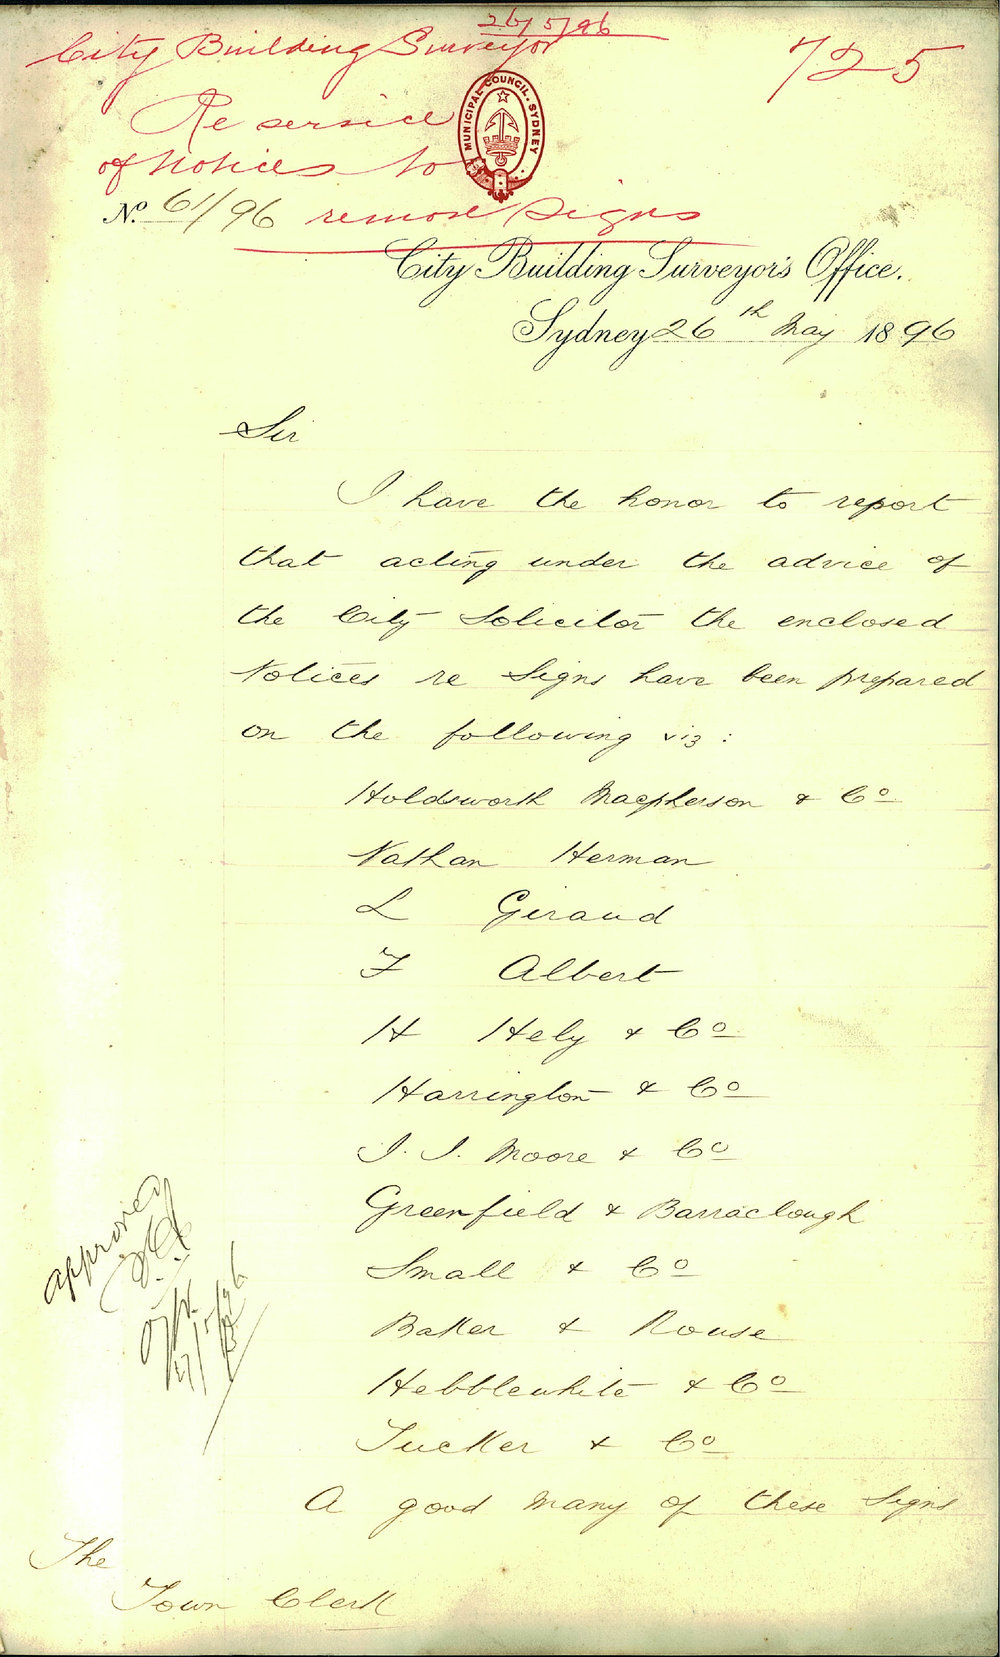 26/5/96
City Building Surveyor
725
Re service
of Notices to
MUNICIPAL COUNCIL. SYDNEY
No. 61/96 remove Signs
City Building Surveyor's Office.
Sydney 26th May 1896
Sir
I have the honor to report
that acting under the advice of
the City Solicitor the enclosed
Notices re Signs have been prepared
on the following viz:
Holdsworth Macpherson & Co
Nathan Herman
L Giraud
F Albert
H Hely & Co
Harrington & Co
J. J. Moore & Co
Greenfield & Barraclough
Small & Co
Baker & Rouse
Hebblewhite & Co
Tucker & Co
A good many of these Signs
approved
The
Town Clerk